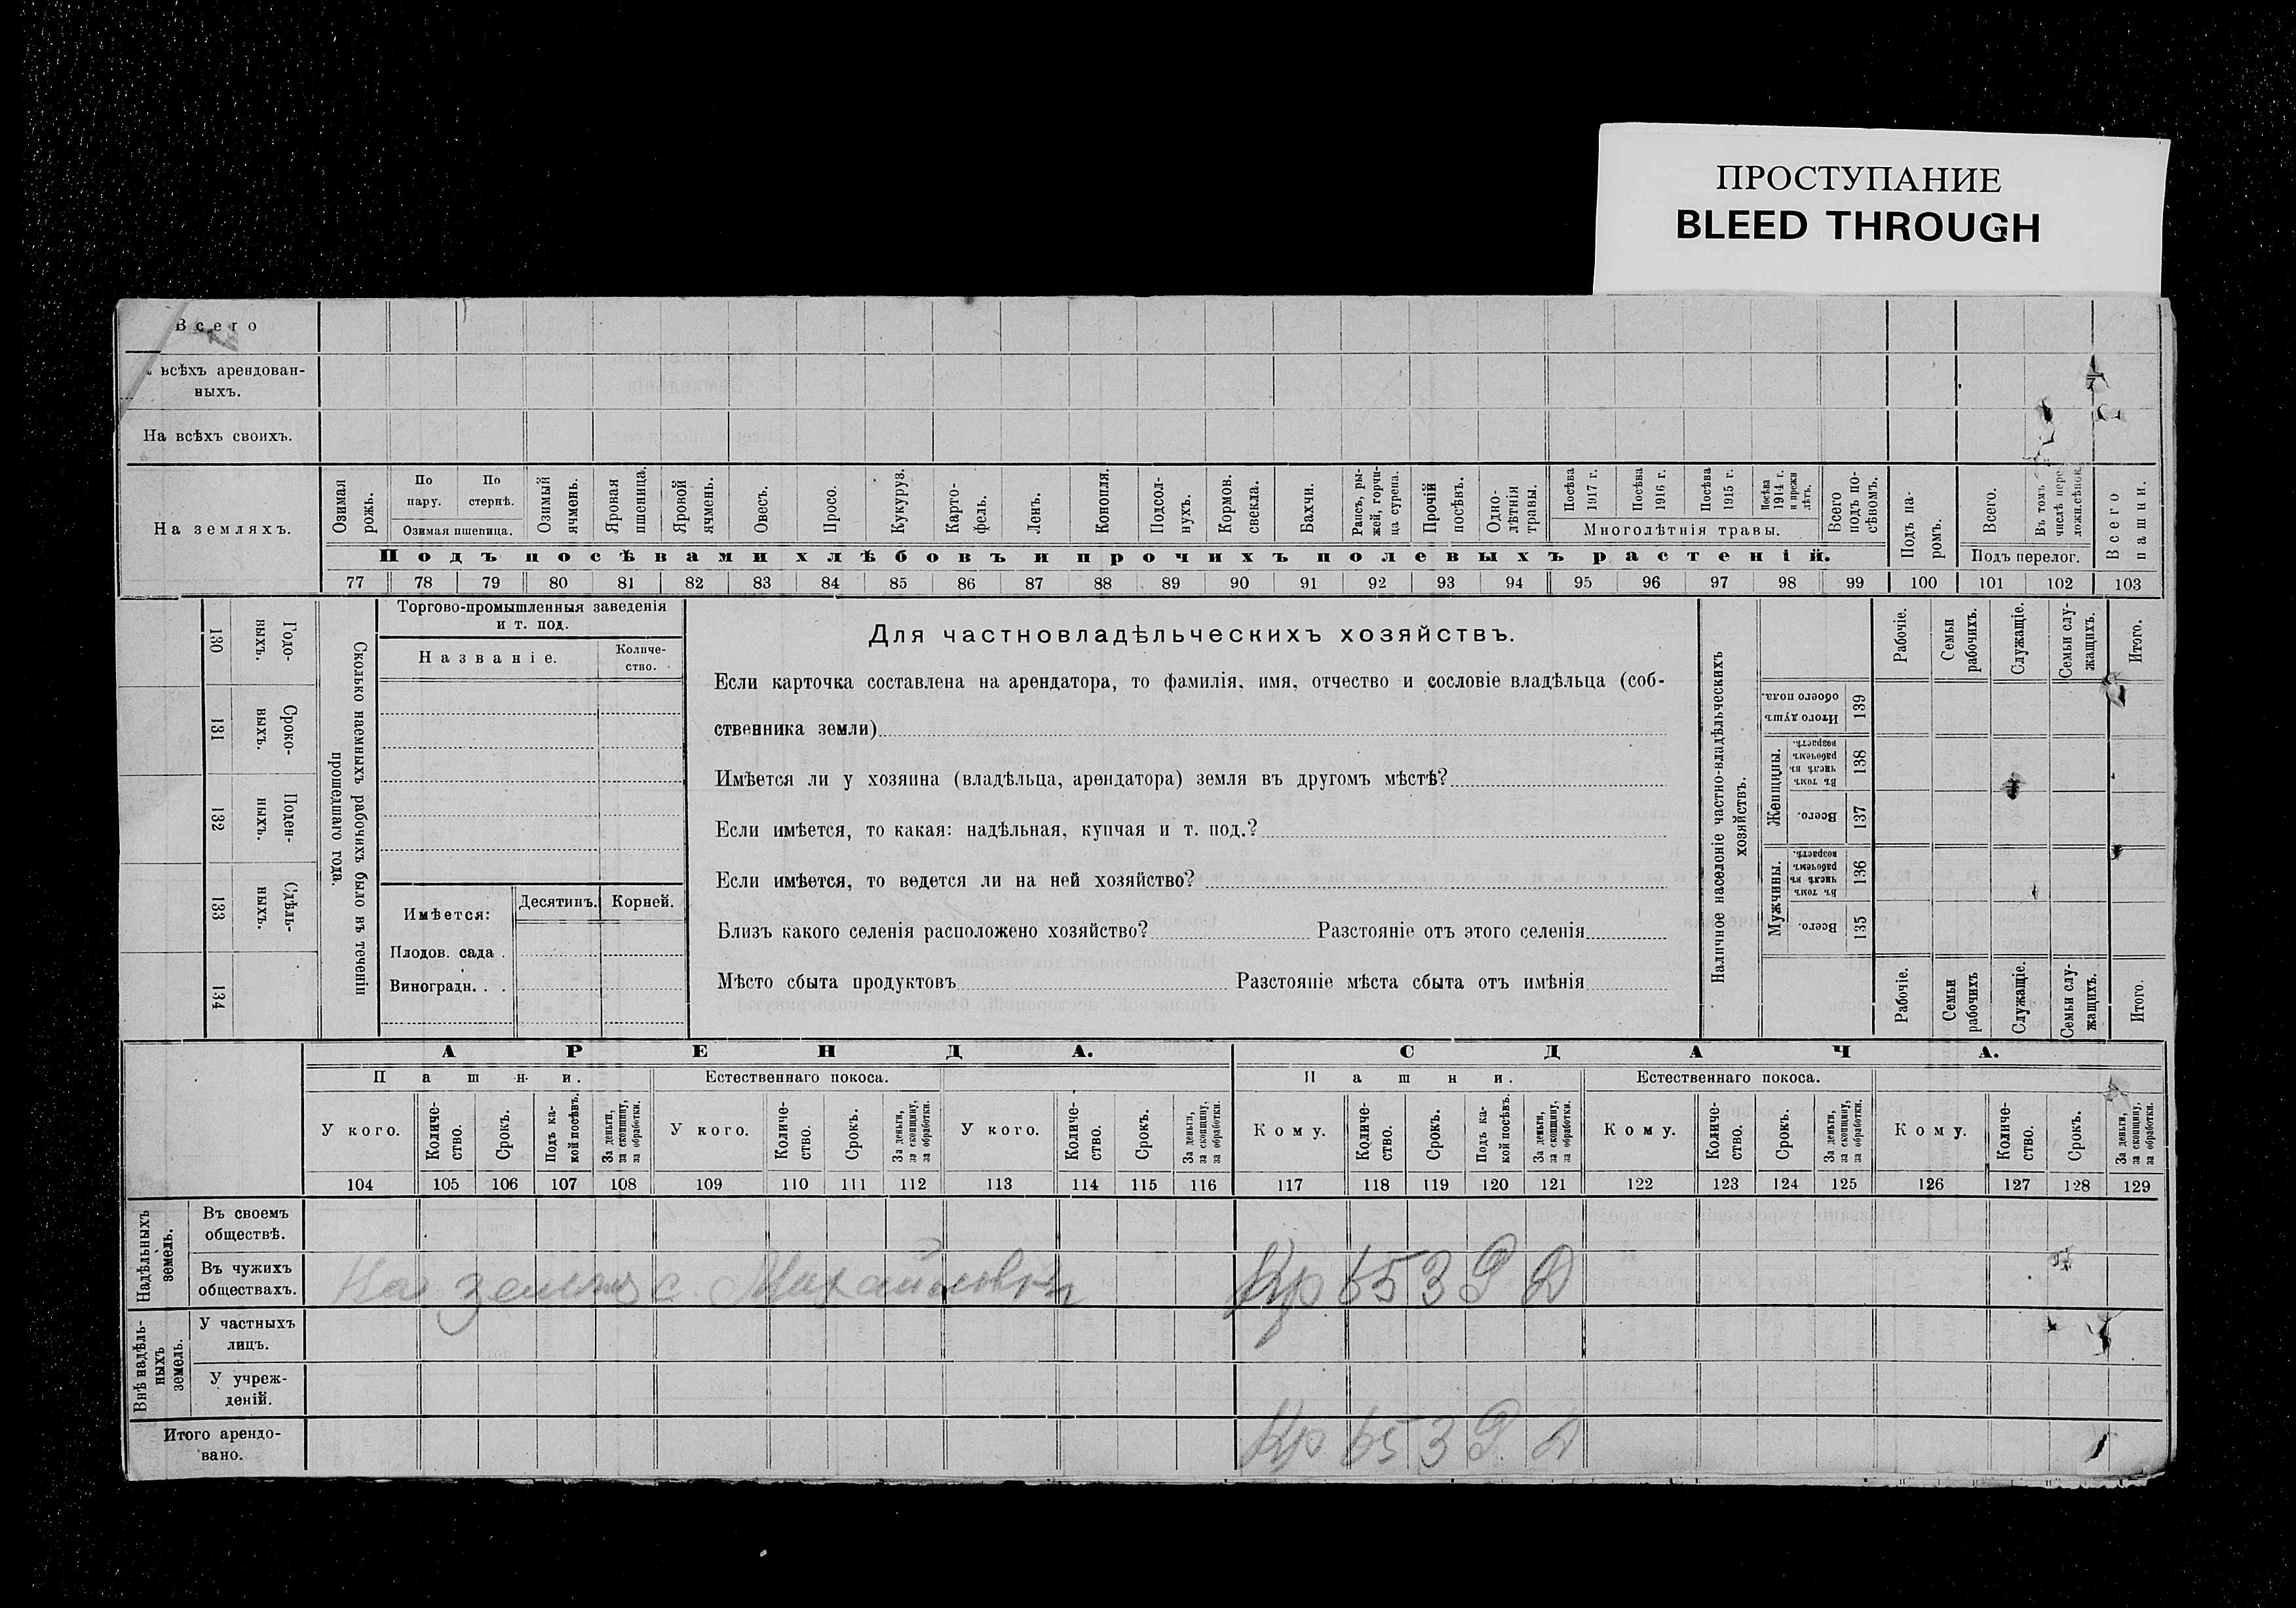 ПРОСТУПАНИЕ
BLEED THROUGH
Всего
всѣхъ арендован-
ныхъ.
На всѣхъ своихъ.
На земляхъ.
Озимая рожь.
По пару.
По стернѣ.
Озимая пшеница.
Озимый ячмень.
Яровая пшеница.
Яровой ячмень.
Овесъ.
Просо.
Кукуруз.
Карто-
фель.
Ленъ.
Конопля.
Подсол-
нухъ.
Кормов. свекла.
Бахчи.
Рапсъ, ры-
жей, горчи-
ца сурепа.
Прочій посѣвъ.
Одно-
лѣтнія травы.
Посѣва 1917 г.
Посѣва 1916 г.
Посѣва 1915 г.
Посѣва 1914 г. и прежн лѣтъ.
Многолѣтнія травы.
Всего подъ по-
сѣвомъ.
Подъ па-
ромъ.
Всего.
Въ томъ числѣ пере-
ложн.сѣнок.
Подъ перелог.
Всего пашни.
Подъ посѣвами хлѣбовъ и прочихъ полевыхъ растеній.
77 78 79 80 81 82 83 84 85 86 87 88 89 90 91 92 93 94 95 96 97 98 99 100 101 102 103
130 Годо-
выхъ.
131 Сроко-
выхъ.
132 Поден-
ныхъ.
133 Сдѣль-
ныхъ.
134
Сколько наемныхъ рабочихъ было въ теченіи
прошедшаго года.
Торгово-промышленныя заведенія
и т. под.
Названіе.
Количе-
ство.
Имѣется:
Десятинъ.
Корней.
Плодов. сада .
Виноградн. . .
Для частновладѣльческихъ хозяйствъ.
Если карточка составлена на арендатора, то фамилія, имя, отчество и сословіе владѣльца (соб-
ственника земли)
Имѣется ли у хозяина (владѣльца, арендатора) земля въ другомъ мѣстѣ?
Если имѣется, то какая: надѣльная, купчая и т. под.?
Если имѣется, то ведется ли на ней хозяйство?
Близъ какого селенія расположено хозяйство? Разстояніе отъ этого селенія
Мѣсто сбыта продуктовъ Разстояніе мѣста сбыта отъ имѣнія
Наличное населеніе частно-владѣльческихъ
хозяйствъ.
Рабочіе.
Семьи рабочихъ.
Служащіе.
Семьи слу-
жащихъ.
Итого.
Итого душъ обоего пола. 139
Женщины.
Въ томъ числѣ въ рабочемъ возрастѣ. 138
Всего. 137
Мужчины.
Въ томъ числѣ въ рабочемъ возрастѣ. 136
Всего. 135
Рабочіе.
Семьи рабочихъ
Служащіе.
Семьи слу-
жащихъ.
Итого.
АРЕНДА.
СДАЧА.
Пашни.
Естественнаго покоса.
Пашни.
Естественнаго покоса.
У кого.
Количе-
ство.
Срокъ.
Подъ ка-
кой посѣвъ.
За деньги, за скопщину, за обработки.
У кого.
Количе-
ство.
Срокъ.
За деньги, за скопщину, за обработки.
У кого.
Количе-
ство.
Срокъ.
За деньги, за скопщину, за обработки.
Кому.
Количе-
ство.
Срокъ.
Подъ ка-
кой посѣвъ.
За деньги, за скопщину, за обработки.
Кому.
Количе-
ство.
Срокъ.
За деньги, за скопщину, за обработки.
Кому.
Количе-
ство.
Срокъ.
За деньги, за скопщину, за обработки.
104 105 106 107 108 109 110 111 112 113 114 115 116 117 118 119 120 121 122 123 124 125 126 127 128 129
Надѣльныхъ
земель.
Въ своемъ
обществѣ.
Въ чужихъ
обществахъ.
На земляхъ с.
Кр 3 Д
Внѣ надѣль-
ныхъ
земель.
У частныхъ
лицъ.
У учреж-
деній.
Итого арендо-
вано.
Кр 3 Д